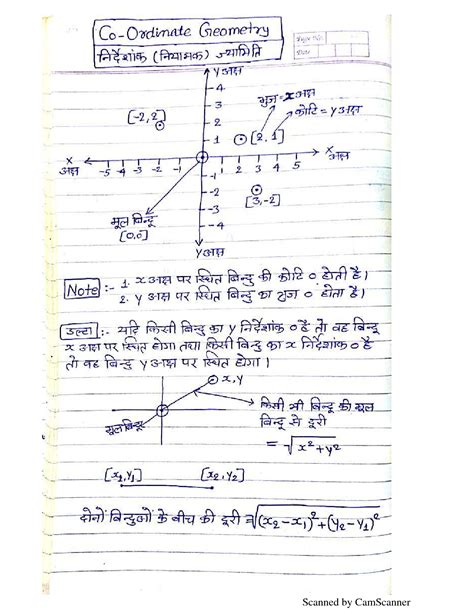 Co-Ordinate Geometry
निर्देशांक (नियामक) ज्यामिति
y अक्ष
4
3
2
1
[-2, 2]
भुज = x अक्ष
कोटि = y अक्ष
[2, 1]
x
अक्ष
-5 -4 -3 -2 -1
1 2 3 4 5
x
अक्ष
-1
-2
-3
-4
[3, -2]
मूल बिन्दु
[0,0]
y अक्ष
Note :- 1. x अक्ष पर स्थित बिन्दु की कोटि 0 होती है।
2. y अक्ष पर स्थित बिन्दु का भुज 0 होता है।
उल्टा :- यदि किसी बिन्दु का y निर्देशांक 0 है तो वह बिन्दु
x अक्ष पर स्थित होगा तथा किसी बिन्दु का x निर्देशांक 0 है
तो वह बिन्दु y अक्ष पर स्थित होगा।
x, y
मूल बिन्दु
किसी भी बिन्दु की मूल
बिन्दु से दूरी
= √x²+y²
[x₁,y₁] [x₂,y₂]
दोनों बिन्दुओं के बीच की दूरी = √(x₂-x₁)²+(y₂-y₁)²
Scanned by CamScanner